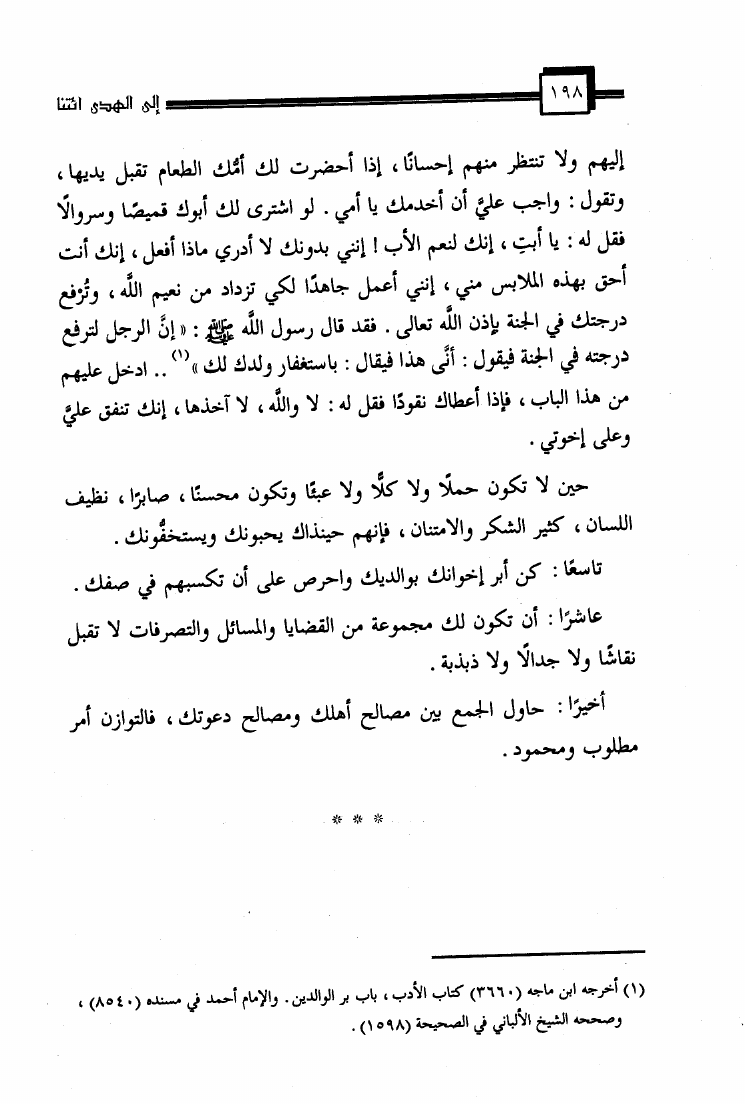 ١٩٨
إلى الهدى ائتنا
إليهم ولا تنتظر منهم إحسانًا، إذا أحضرت لك أمُّك الطعام تقبل يديها،
وتقول: واجب عليَّ أن أخدمك يا أمي. لو اشترى لك أبوك قميصًا وسروالًا
فقل له: يا أبتِ، إنك لنعم الأب! إنني بدونك لا أدري ماذا أفعل، إنك أنت
أحق بهذه الملابس مني، إنني أعمل جاهدًا لكي تزداد من نعيم اللَّه، وتُرْفع
درجتك في الجنة بإذن اللَّه تعالى. فقد قال رسول اللَّه ﷺ: «إنَّ الرجل لترفع
درجته في الجنة فيقول: أنَّى هذا فيقال: باستغفار ولدك لك»(١).. ادخل عليهم
من هذا الباب، فإذا أعطاك نقودًا فقل له: لا واللَّه، لا آخذها، إنك تنفق عليَّ
وعلى إخوتي.
حين لا تكون حملًا ولا كلًّا ولا عبئًا وتكون محسنًا، صابرًا، نظيف
اللسان، كثير الشكر والامتنان، فإنهم حينذاك يحبونك ويستخفُّونك.
تاسعًا: كن أبر إخوانك بوالديك واحرص على أن تكسبهم في صفك.
عاشرًا: أن تكون لك مجموعة من القضايا والمسائل والتصرفات لا تقبل
نقاشًا ولا جدالًا ولا ذبذبة.
أخيرًا: حاول الجمع بين مصالح أهلك ومصالح دعوتك، فالتوازن أمر
مطلوب ومحمود.
* * *
(١) أخرجه ابن ماجه (٣٦٦٠) كتاب الأدب، باب بر الوالدين. والإمام أحمد في مسنده (٨٥٤٠)،
وصححه الشيخ الألباني في الصحيحة (١٥٩٨).